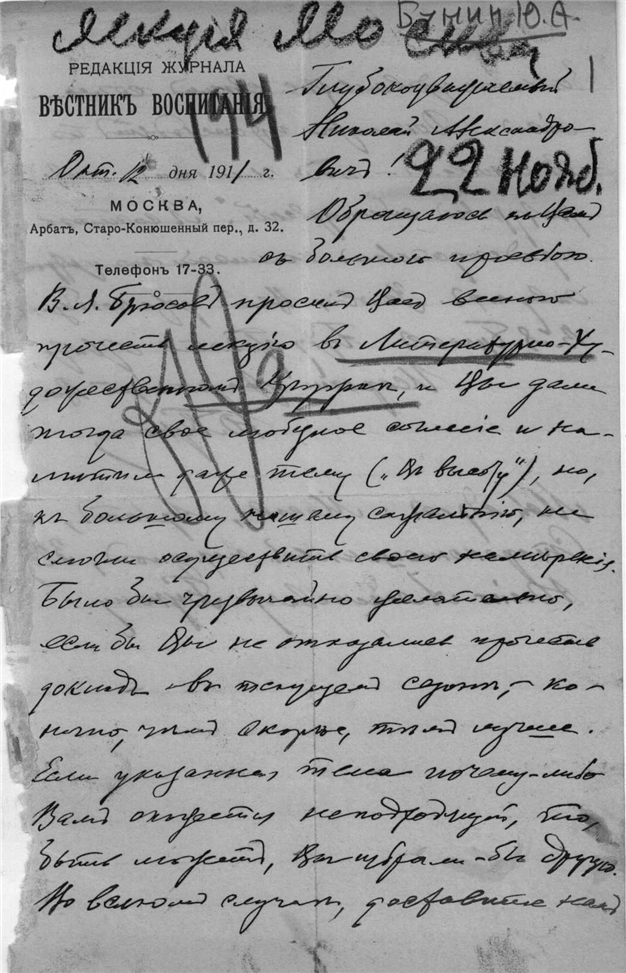 Бунин Ю.А.
Лекція Москва
РЕДАКЦІЯ ЖУРНАЛА
ВѢСТНИКЪ ВОСПИТАНІЯ
194
Окт. 12 дня 1911 г.
МОСКВА,
Арбатъ, Старо-Конюшенный пер., д. 32.
Телефонъ 17-33.
Глубокоуважаемый
Николай Александро-
вичъ!
22 Нояб.
Обращаюсь къ Вамъ
съ большою просьбою.
В. Я. Брюсовъ просилъ Васъ весною
прочесть лекцію въ Литературно-Ху-
дожественномъ Кружкѣ, и Вы дали
тогда свое любезное согласіе и на-
мѣтили даже тему („Въ высоту“), но,
къ большому нашему сожалѣнію, не
смогли осуществить своего намѣренія.
Было бы чрезвычайно желательно,
если бы Вы не отказались прочесть
докладъ въ текущемъ сезонѣ, – ко-
нечно, чѣмъ скорѣе, тѣмъ лучше.
Если указанная тема почему-либо
Вамъ окажется неподходящей, то,
быть можетъ, Вы избрали-бы другую.
Во всякомъ случаѣ, доставьте намъ